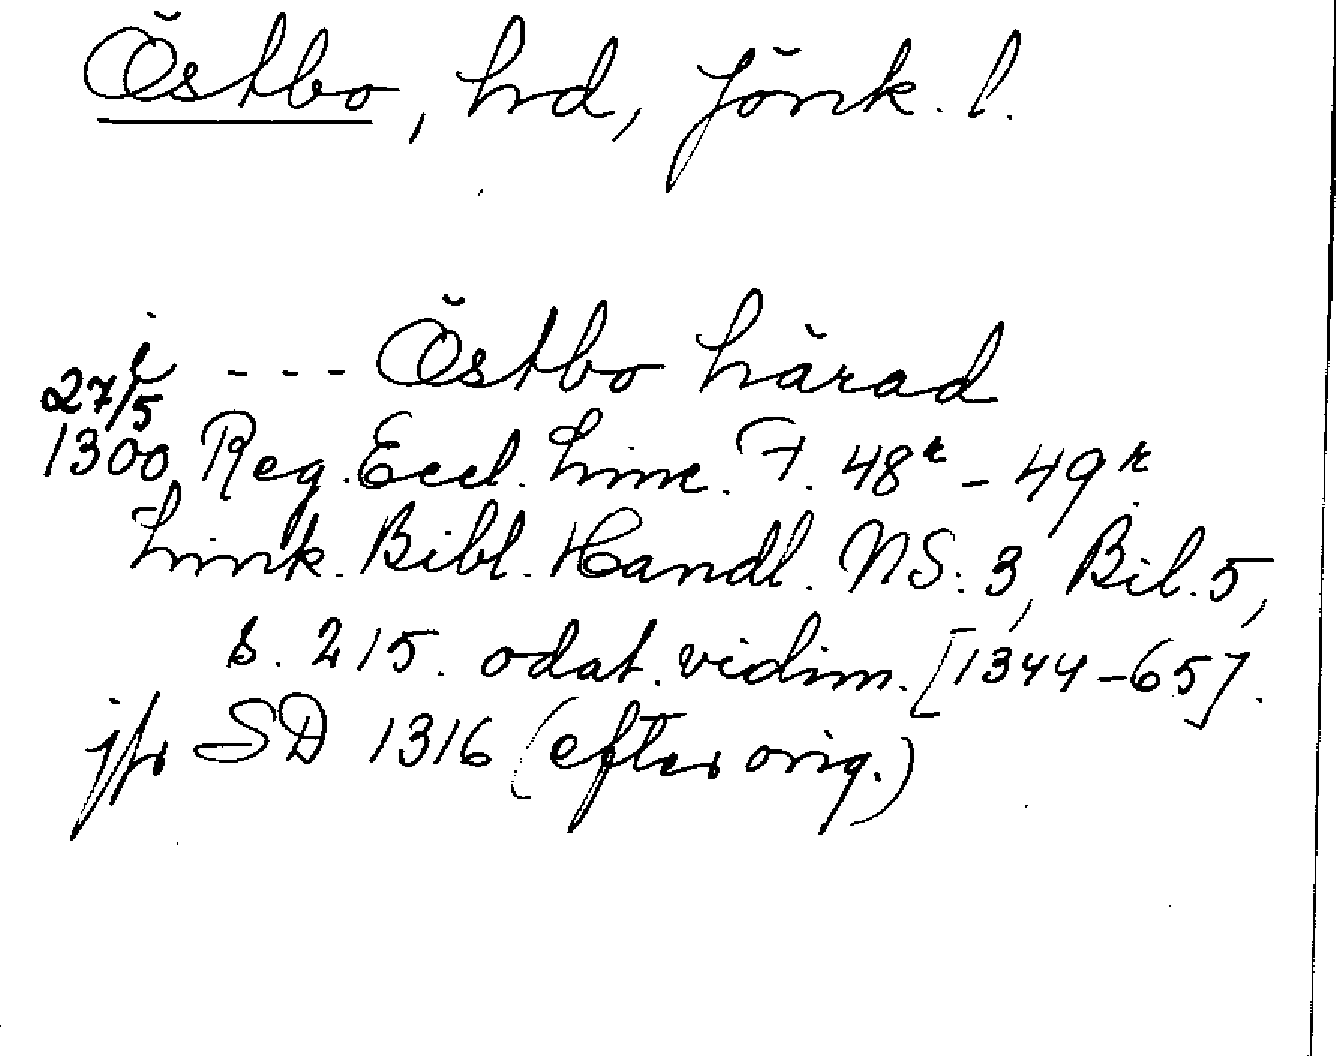 Östbo, hd, Jönk. l.
i --- Östbo härad
27/5
1300 Reg. Eccl. Linc. F. 48r - 49r
Link. Bibl. Handl. NS: 3, Bil. 5,
s. 215. odat. vidim. [1344-65].
jfr SD 1316 (efter orig.)